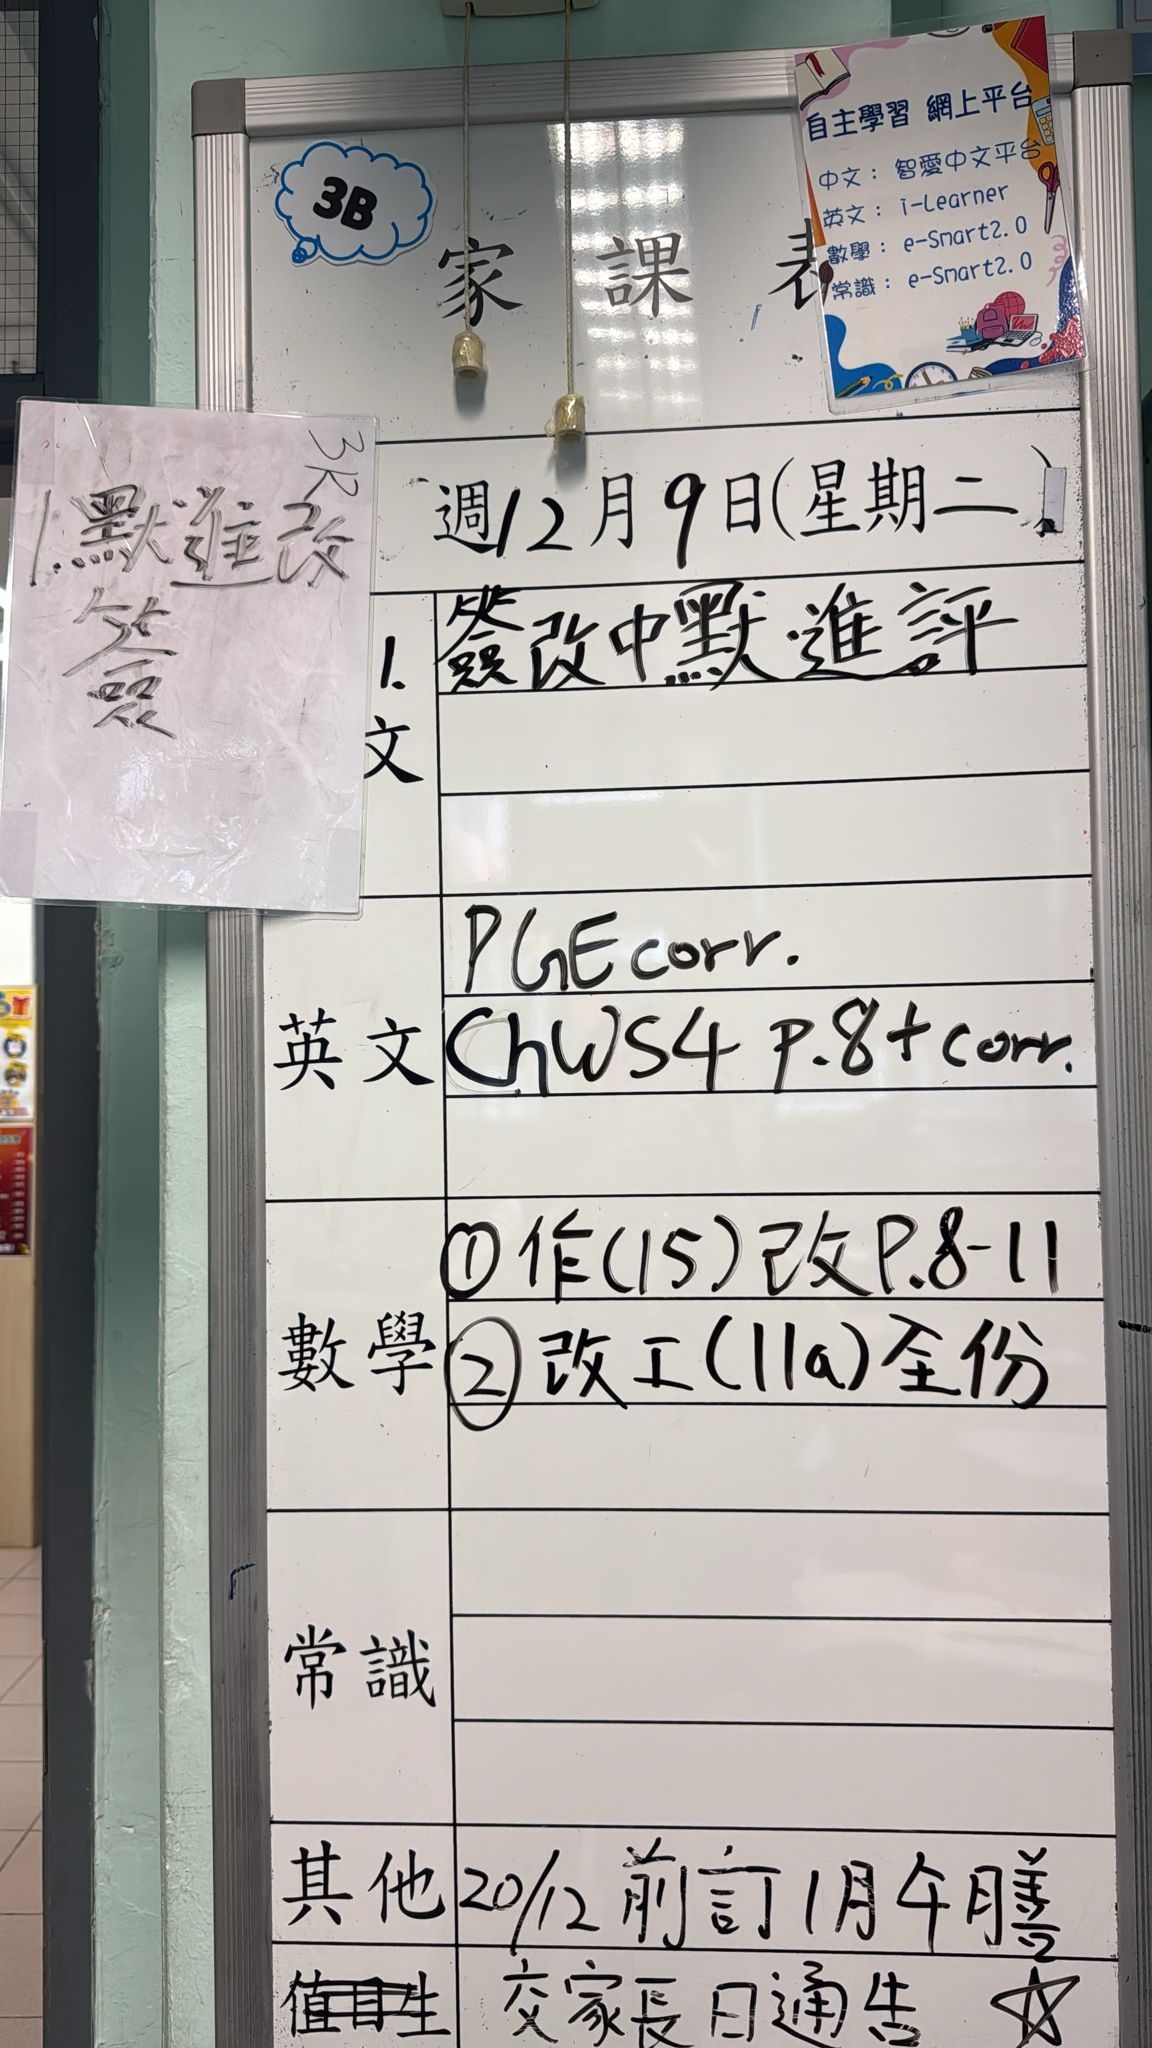 3B
家 課 表
自主學習 網上平台
中文：智愛中文平台
英文：i-Learner
數學：e-Smart2.0
常識：e-Smart2.0
3R
1.默進改
簽
週12月9日(星期二)
1. 簽改中默進評
文
PGE corr.
英文 ChWS4 P.8+corr.
①作(15)改P.8-11
數學 ②改工(11a)全份
常識
其他 20/12前訂1月午膳
值日生 交家長日通告 ☆